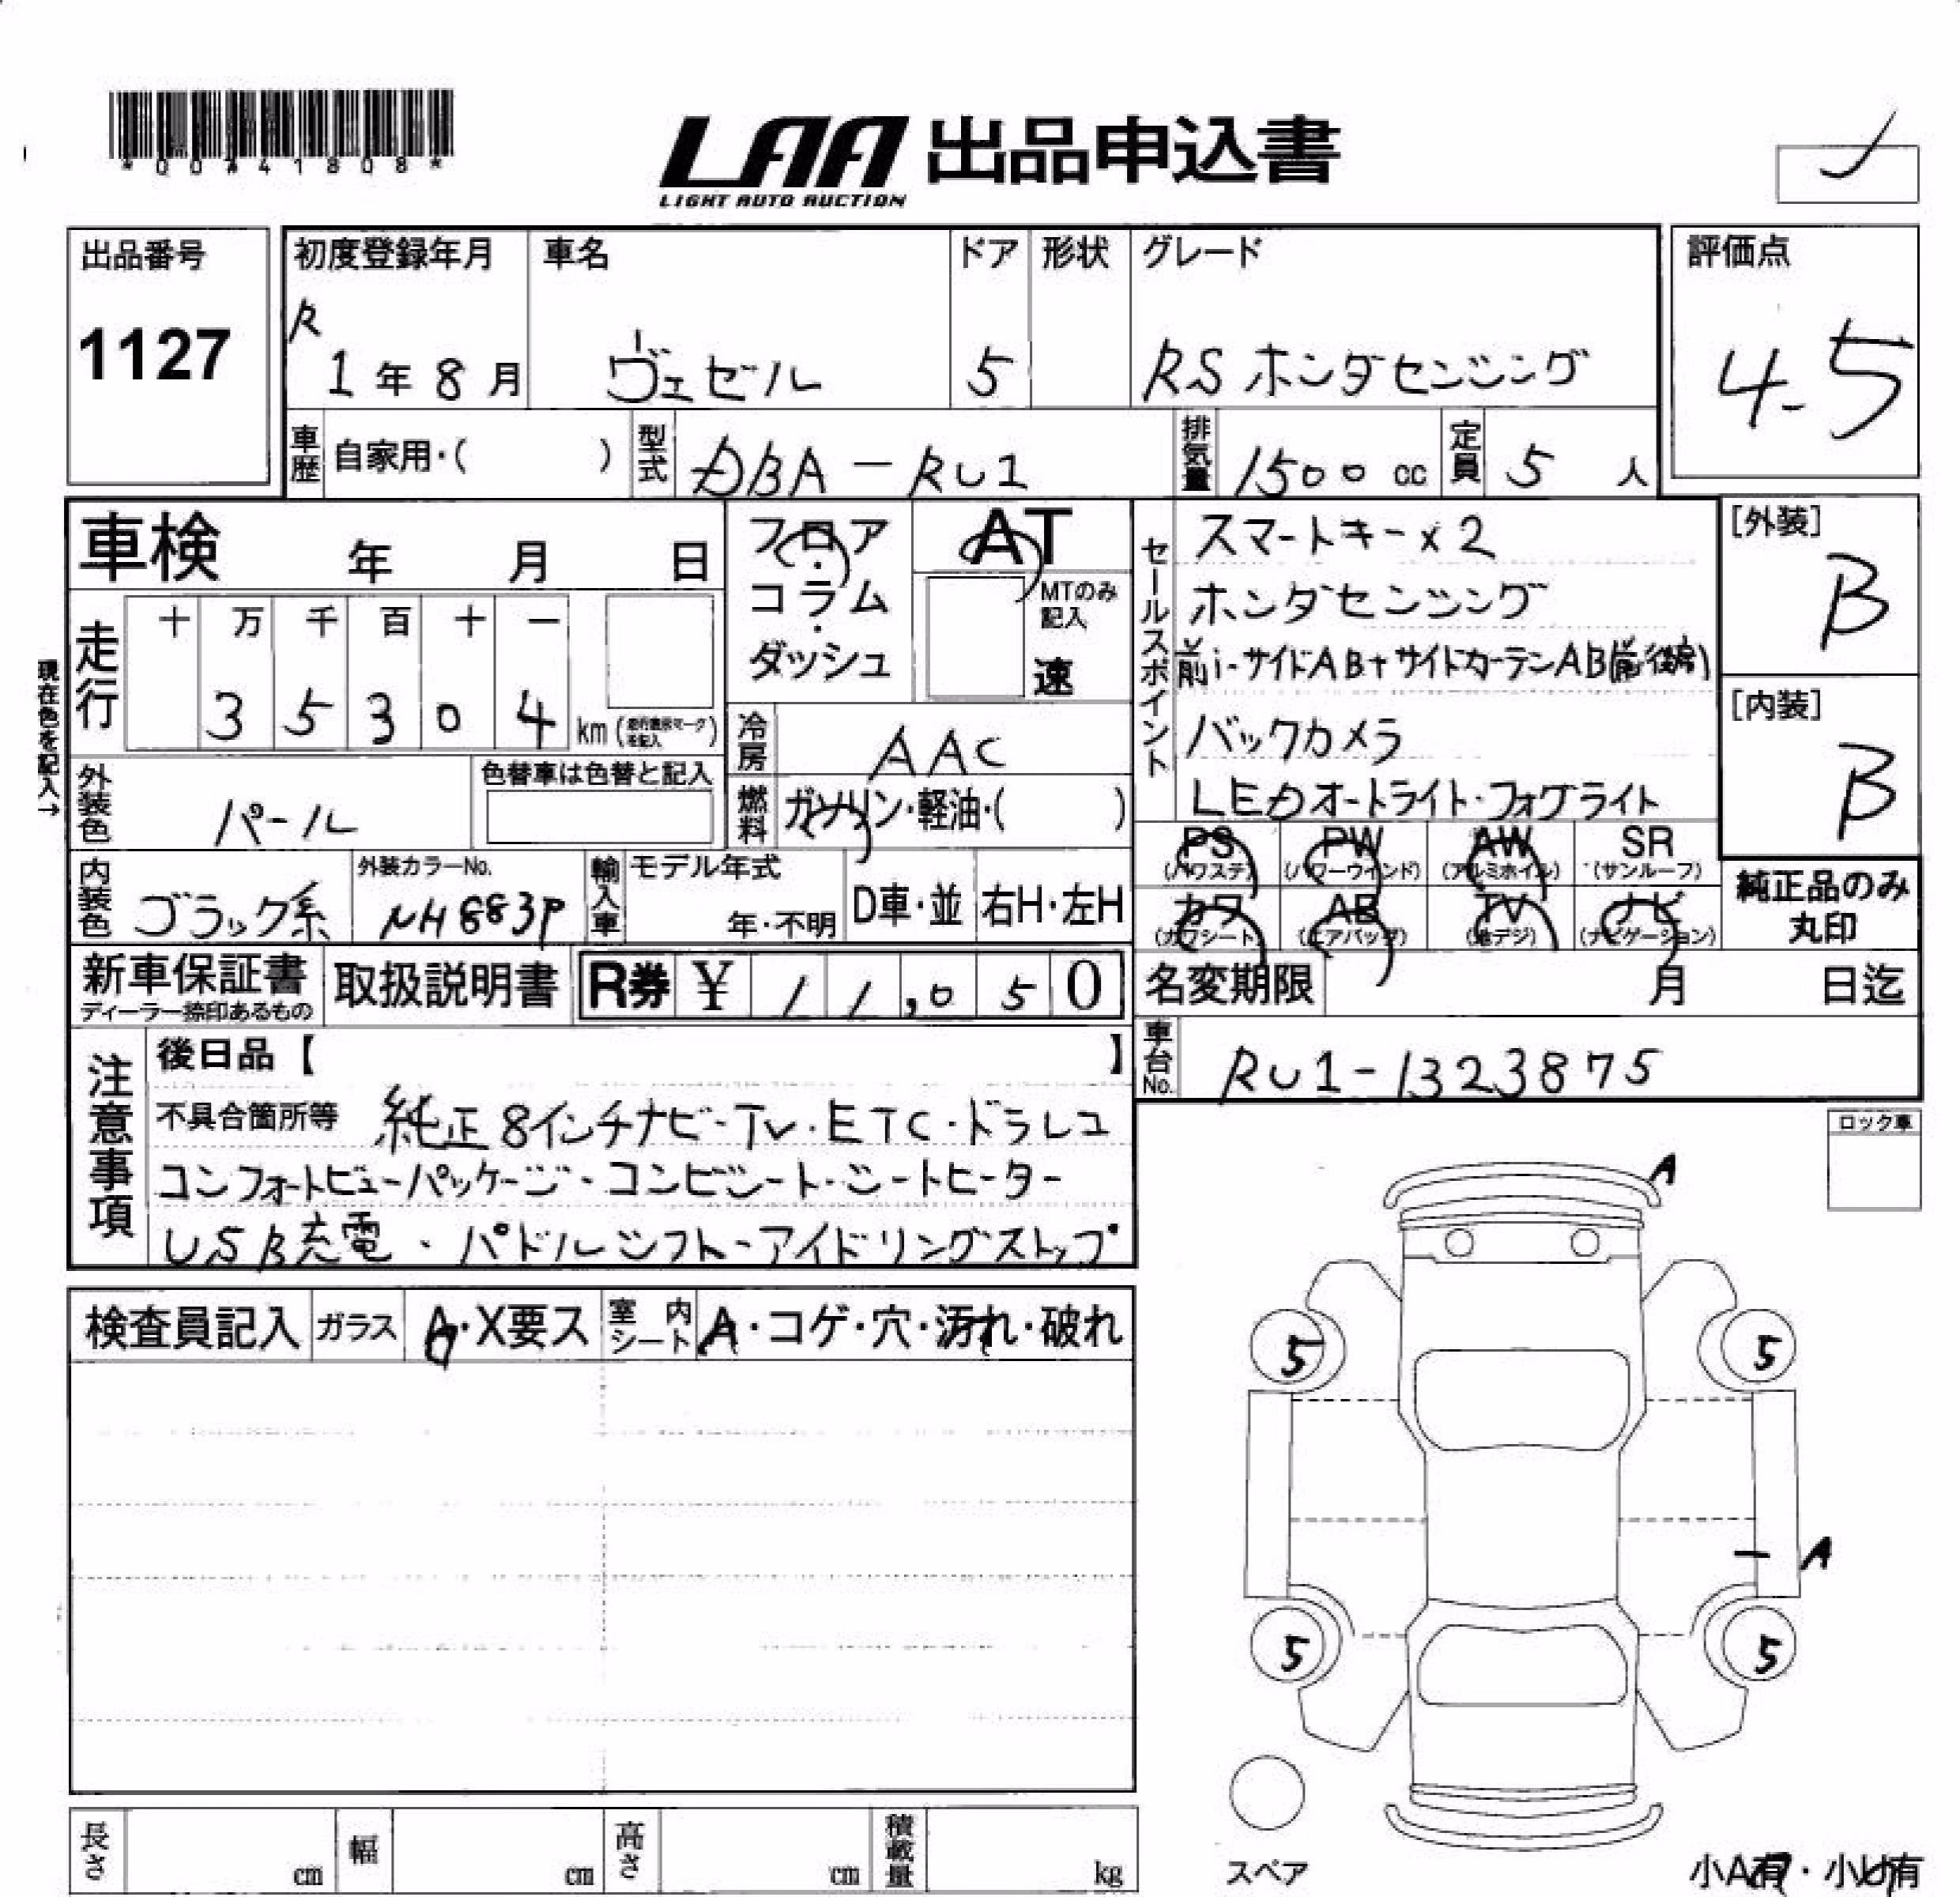 *00A41808*
LAA 出品申込書
LIGHT AUTO AUCTION
出品番号
1127
初度登録年月
R 1年8月
車名
ヴェゼル
ドア
5
形状
グレード
RSホンダセンシング
評価点
4.5
車歴 自家用・( )
型式 DBA-RU1
排気量 1500 cc
定員 5 人
車検 年 月 日
フロア・コラム・ダッシュ
AT
MTのみ記入
速
セールスポイント
スマートキー×2
ホンダセンシング
前i-サイドAB+サイドカーテンAB(前後席)
バックカメラ
LEDオートライト・フォグライト
[外装]
B
[内装]
B
現在色を記入→
走行
十 万 千 百 十 一
3 5 3 0 4 km
冷房 AAC
燃料 ガソリン・軽油・( )
外装色 パール
色替車は色替と記入
内装色 ブラック系
外装カラーNo.
NH883P
輸入車
モデル年式
年・不明
D車・並
右H・左H
PS (パワステ)
PW (パワーウインド)
AW (アルミホイル)
SR (サンルーフ)
カワ (カワシート)
AB (エアバッグ)
TV (地デジ)
ナビ (ナビゲーション)
純正品のみ丸印
新車保証書
ディーラー捺印あるもの
取扱説明書
R券 ¥ 11,050
名変期限 月 日迄
車台No. RU1-1323875
注意事項
後日品【 】
不具合箇所等 純正8インチナビ・TV・ETC・ドラレコ
コンフォートビューパッケージ・コンビシート・シートヒーター
USB充電・パドルシフト・アイドリングストップ
ロック車
A
検査員記入
ガラス A・X要ス
室内シート A・コゲ・穴・汚れ・破れ
5 5
A
5 5
スペア
小A有・小U有
長さ cm
幅 cm
高さ cm
積載量 kg